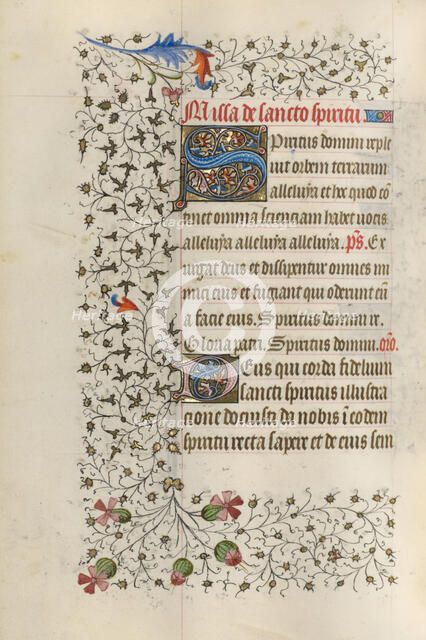 Missa de sancto spiritu.
Spiritus domini reple
uit orbem terrarum
alleluya et hoc quod con
tinet omnia scienciam habet uocis
alleluya alleluya alleluya. ps. Ex
urgat deus et dissipentur omnes ini
mici eius et fugiant qui oderunt eū
a facie eius. Spiritus domini re.
Gloria patri. Spiritus domini. oro.
Deus qui corda fidelium
sancti spiritus illustra
cione docuisti da nobis ī eodem
spiritu recta sapere et de eius sem